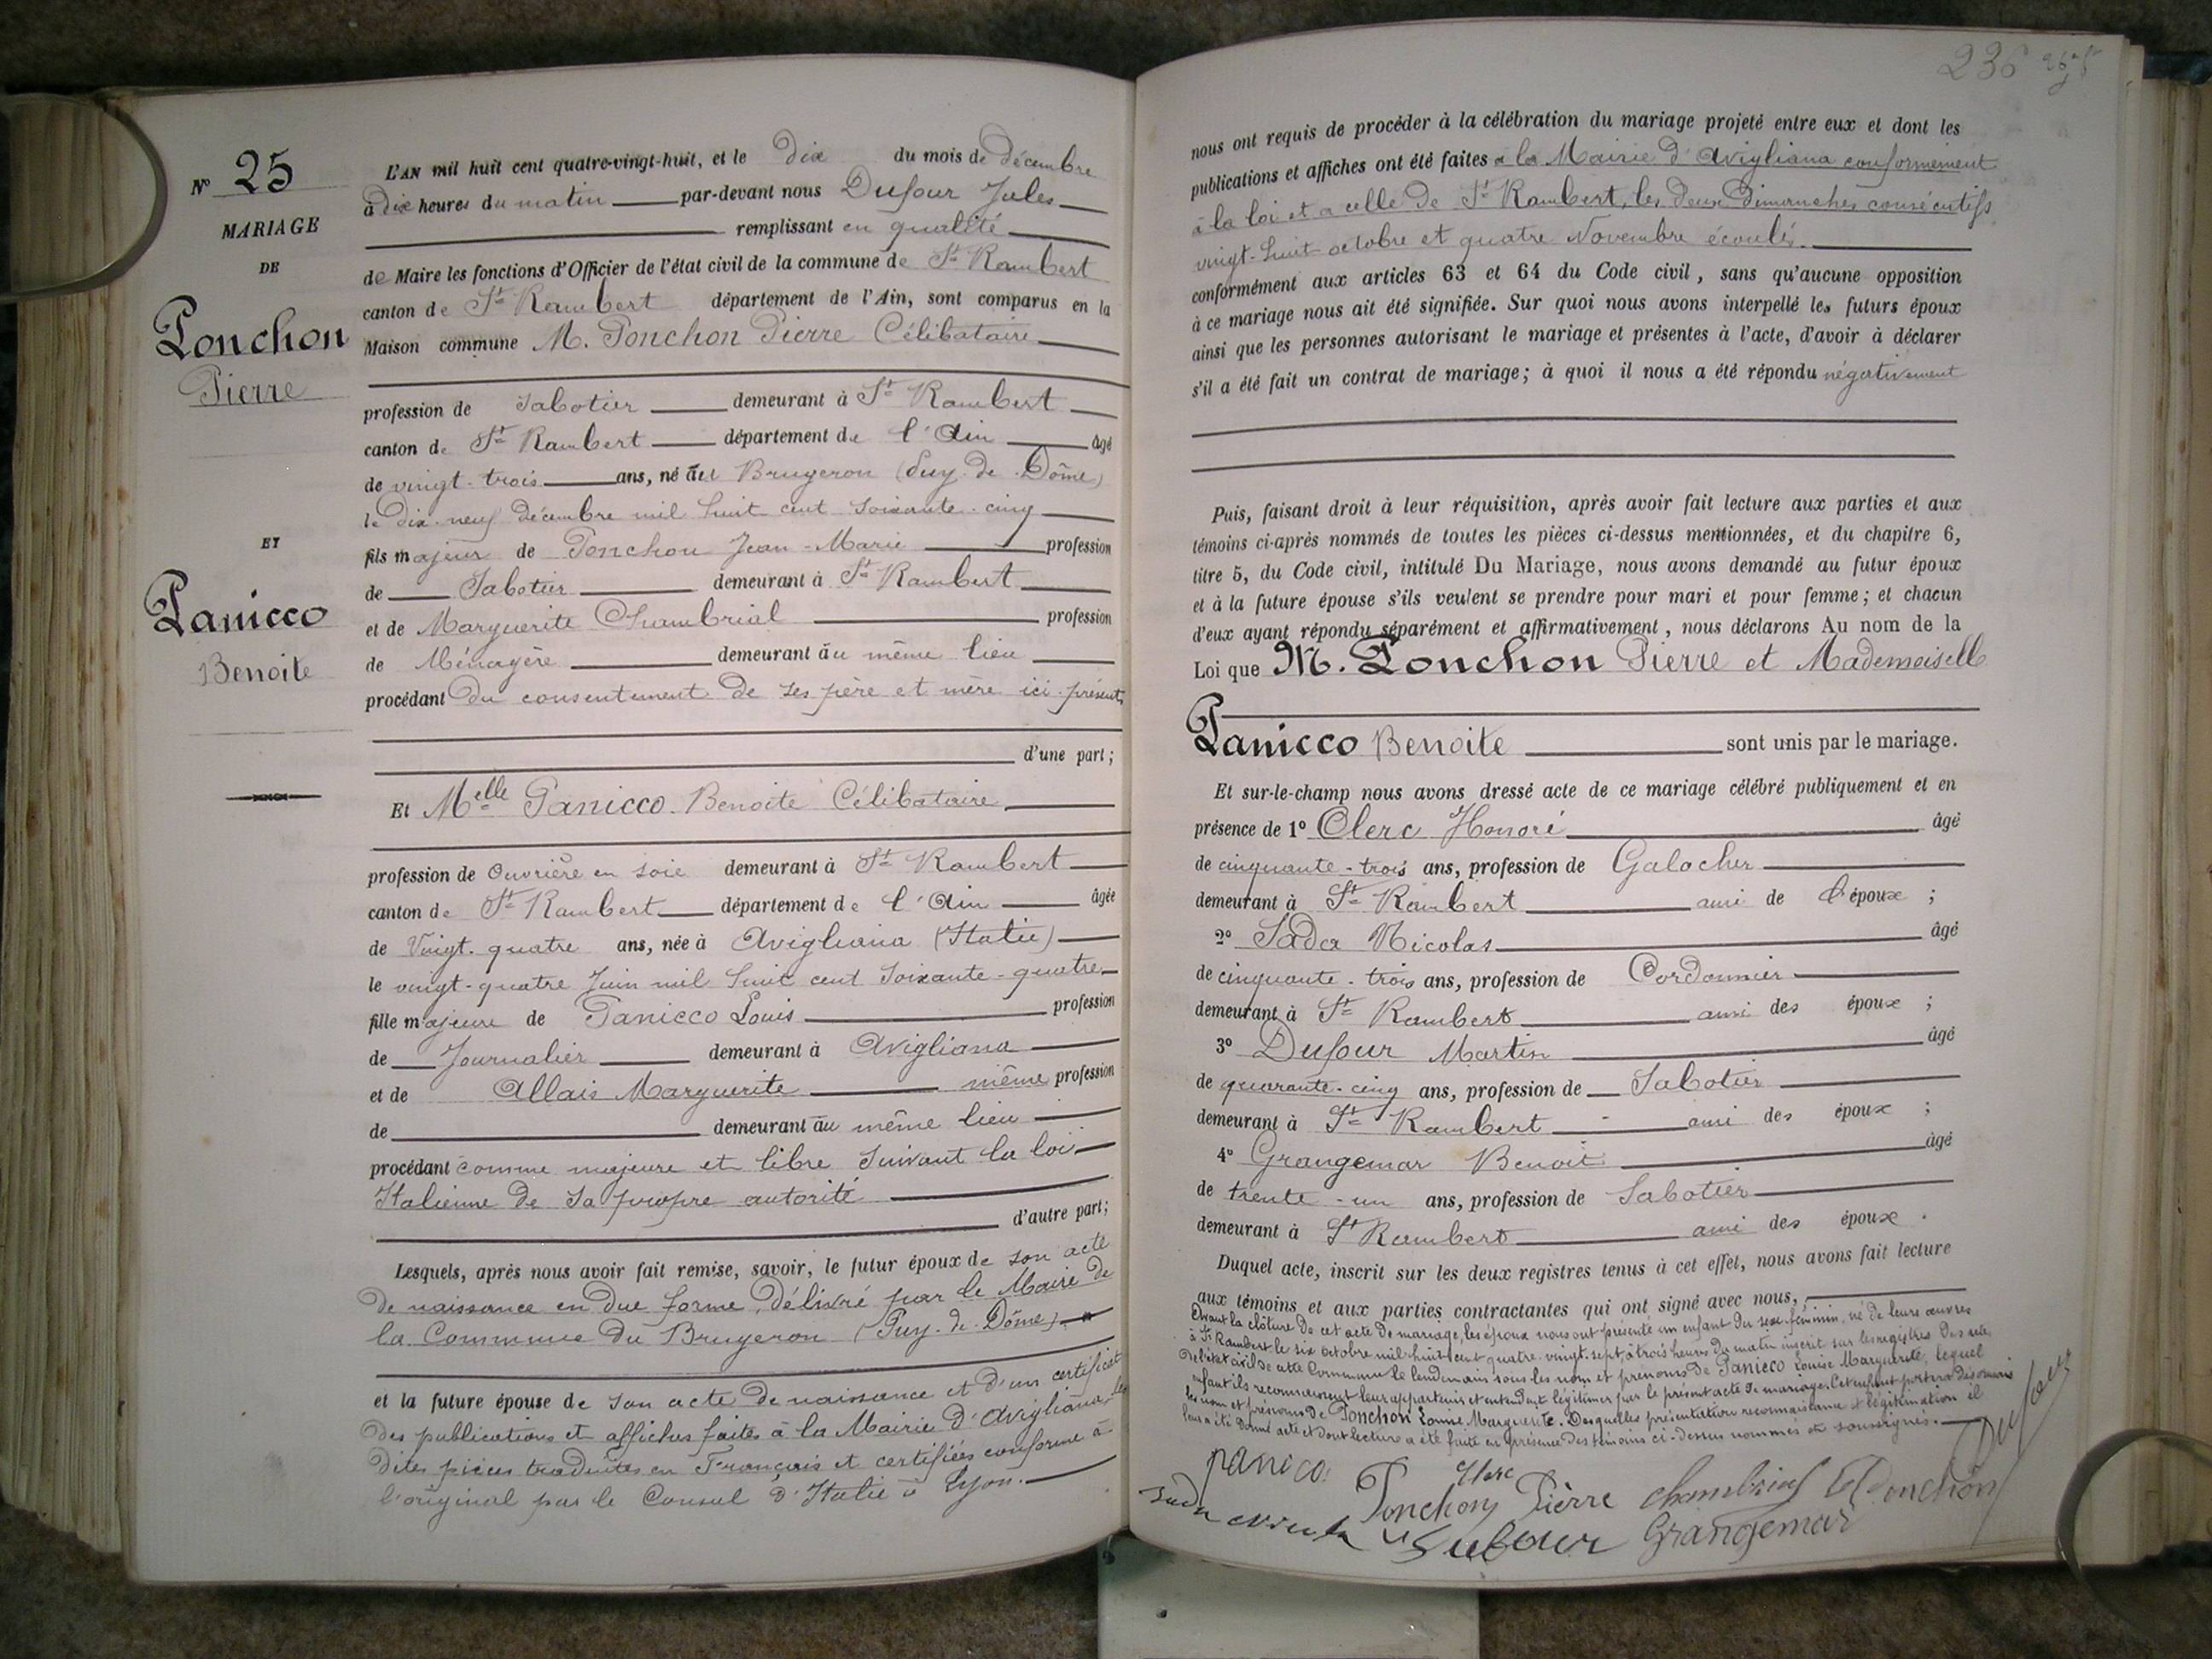 N° 25
MARIAGE
DE
Ponchon
Pierre
ET
Panicco
Benoite
L'AN mil huit cent quatre-vingt-huit, et le dix du mois de Décembre
à dix heures du matin par-devant nous Dufour Jules
remplissant en qualité
de Maire les fonctions d'Officier de l'état civil de la commune de St Rambert
canton de St Rambert département de l'Ain, sont comparus en la
Maison commune M. Ponchon Pierre Célibataire
profession de Sabotier demeurant à St Rambert
canton de St Rambert département de l'Ain âgé
de vingt-trois ans, né au Brugeron (Puy-de-Dôme)
le dix-neuf Décembre mil huit cent soixante-cinq
fils majeur de Ponchon Jean-Marie profession
de Sabotier demeurant à St Rambert
et de Marguerite Chambrial profession
de Ménagère demeurant au même lieu
procédant du consentement de ses père et mère ici présents
d'une part;
Et Melle Panicco Benoite Célibataire
profession de Ouvrière en soie demeurant à St Rambert
canton de St Rambert département de l'Ain âgée
de Vingt-quatre ans, née à Avigliana (Italie)
le vingt-quatre Juin mil huit cent soixante-quatre
fille majeure de Panicco Louis profession
de Journalier demeurant à Avigliana
et de Allais Marguerite même profession
de demeurant au même lieu
procédant comme majeure et libre suivant la loi
Italienne de sa propre autorité
d'autre part;
Lesquels, après nous avoir fait remise, savoir, le futur époux de son acte
de naissance en due forme, délivré par le Maire de
la Commune du Brugeron (Puy-de-Dôme)
et la future épouse de son acte de naissance et d'un certificat
des publications et affiches faites à la Mairie d'Avigliana, les
dites pièces traduites en Français et certifiées conforme à
l'original par le Consul d'Italie à Lyon.
236
nous ont requis de procéder à la célébration du mariage projeté entre eux et dont les
publications et affiches ont été faites à la Mairie d'Avigliana conformément
à la loi et a celle de St Rambert, les deux Dimanches consécutifs
vingt-huit octobre et quatre Novembre écoulés.
conformément aux articles 63 et 64 du Code civil, sans qu'aucune opposition
à ce mariage nous ait été signifiée. Sur quoi nous avons interpellé les futurs époux
ainsi que les personnes autorisant le mariage et présentes à l'acte, d'avoir à déclarer
s'il a été fait un contrat de mariage; à quoi il nous a été répondu négativement
Puis, faisant droit à leur réquisition, après avoir fait lecture aux parties et aux
témoins ci-après nommés de toutes les pièces ci-dessus mentionnées, et du chapitre 6,
titre 5, du Code civil, intitulé Du Mariage, nous avons demandé au futur époux
et à la future épouse s'ils veulent se prendre pour mari et pour femme; et chacun
d'eux ayant répondu séparément et affirmativement, nous déclarons Au nom de la
Loi que M. Ponchon Pierre et Mademoiselle
Panicco Benoite sont unis par le mariage.
Et sur-le-champ nous avons dressé acte de ce mariage célébré publiquement et en
présence de 1° Clerc Honoré âgé
de cinquante-trois ans, profession de Galocher
demeurant à St Rambert ami de l'époux;
2° Sada Nicolas âgé
de cinquante-trois ans, profession de Cordonnier
demeurant à St Rambert ami des époux;
3° Dufour Martin âgé
de quarante-cinq ans, profession de Sabotier
demeurant à St Rambert ami des époux;
4° Grangemar Benoit âgé
de trente-un ans, profession de Sabotier
demeurant à St Rambert ami des époux.
Duquel acte, inscrit sur les deux registres tenus à cet effet, nous avons fait lecture
aux témoins et aux parties contractantes qui ont signé avec nous,
Avant la clôture de cet acte de mariage, les époux nous ont présenté un enfant du sexe féminin, né de leurs œuvres
à St Rambert le six octobre mil huit cent quatre-vingt-sept, à trois heures du matin inscrit sur les registres des actes
de l'état civil de cette Commune le lendemain sous les nom et prénoms de Panicco Louise Marguerite, lequel
enfant ils reconnaissent leur appartenir et entendent légitimer par le présent acte de mariage. Cet enfant portera désormais
les nom et prénoms de Ponchon Louise Marguerite. Desquelles présentation reconnaissance et légitimation il
leur a été donné acte et dont lecture a été faite en présence des témoins ci-dessus nommés et soussignés.
Dufour
panico
Clerc
Ponchon Pierre
Chambrial
Ponchon
Sada
Dufour
Grangemar